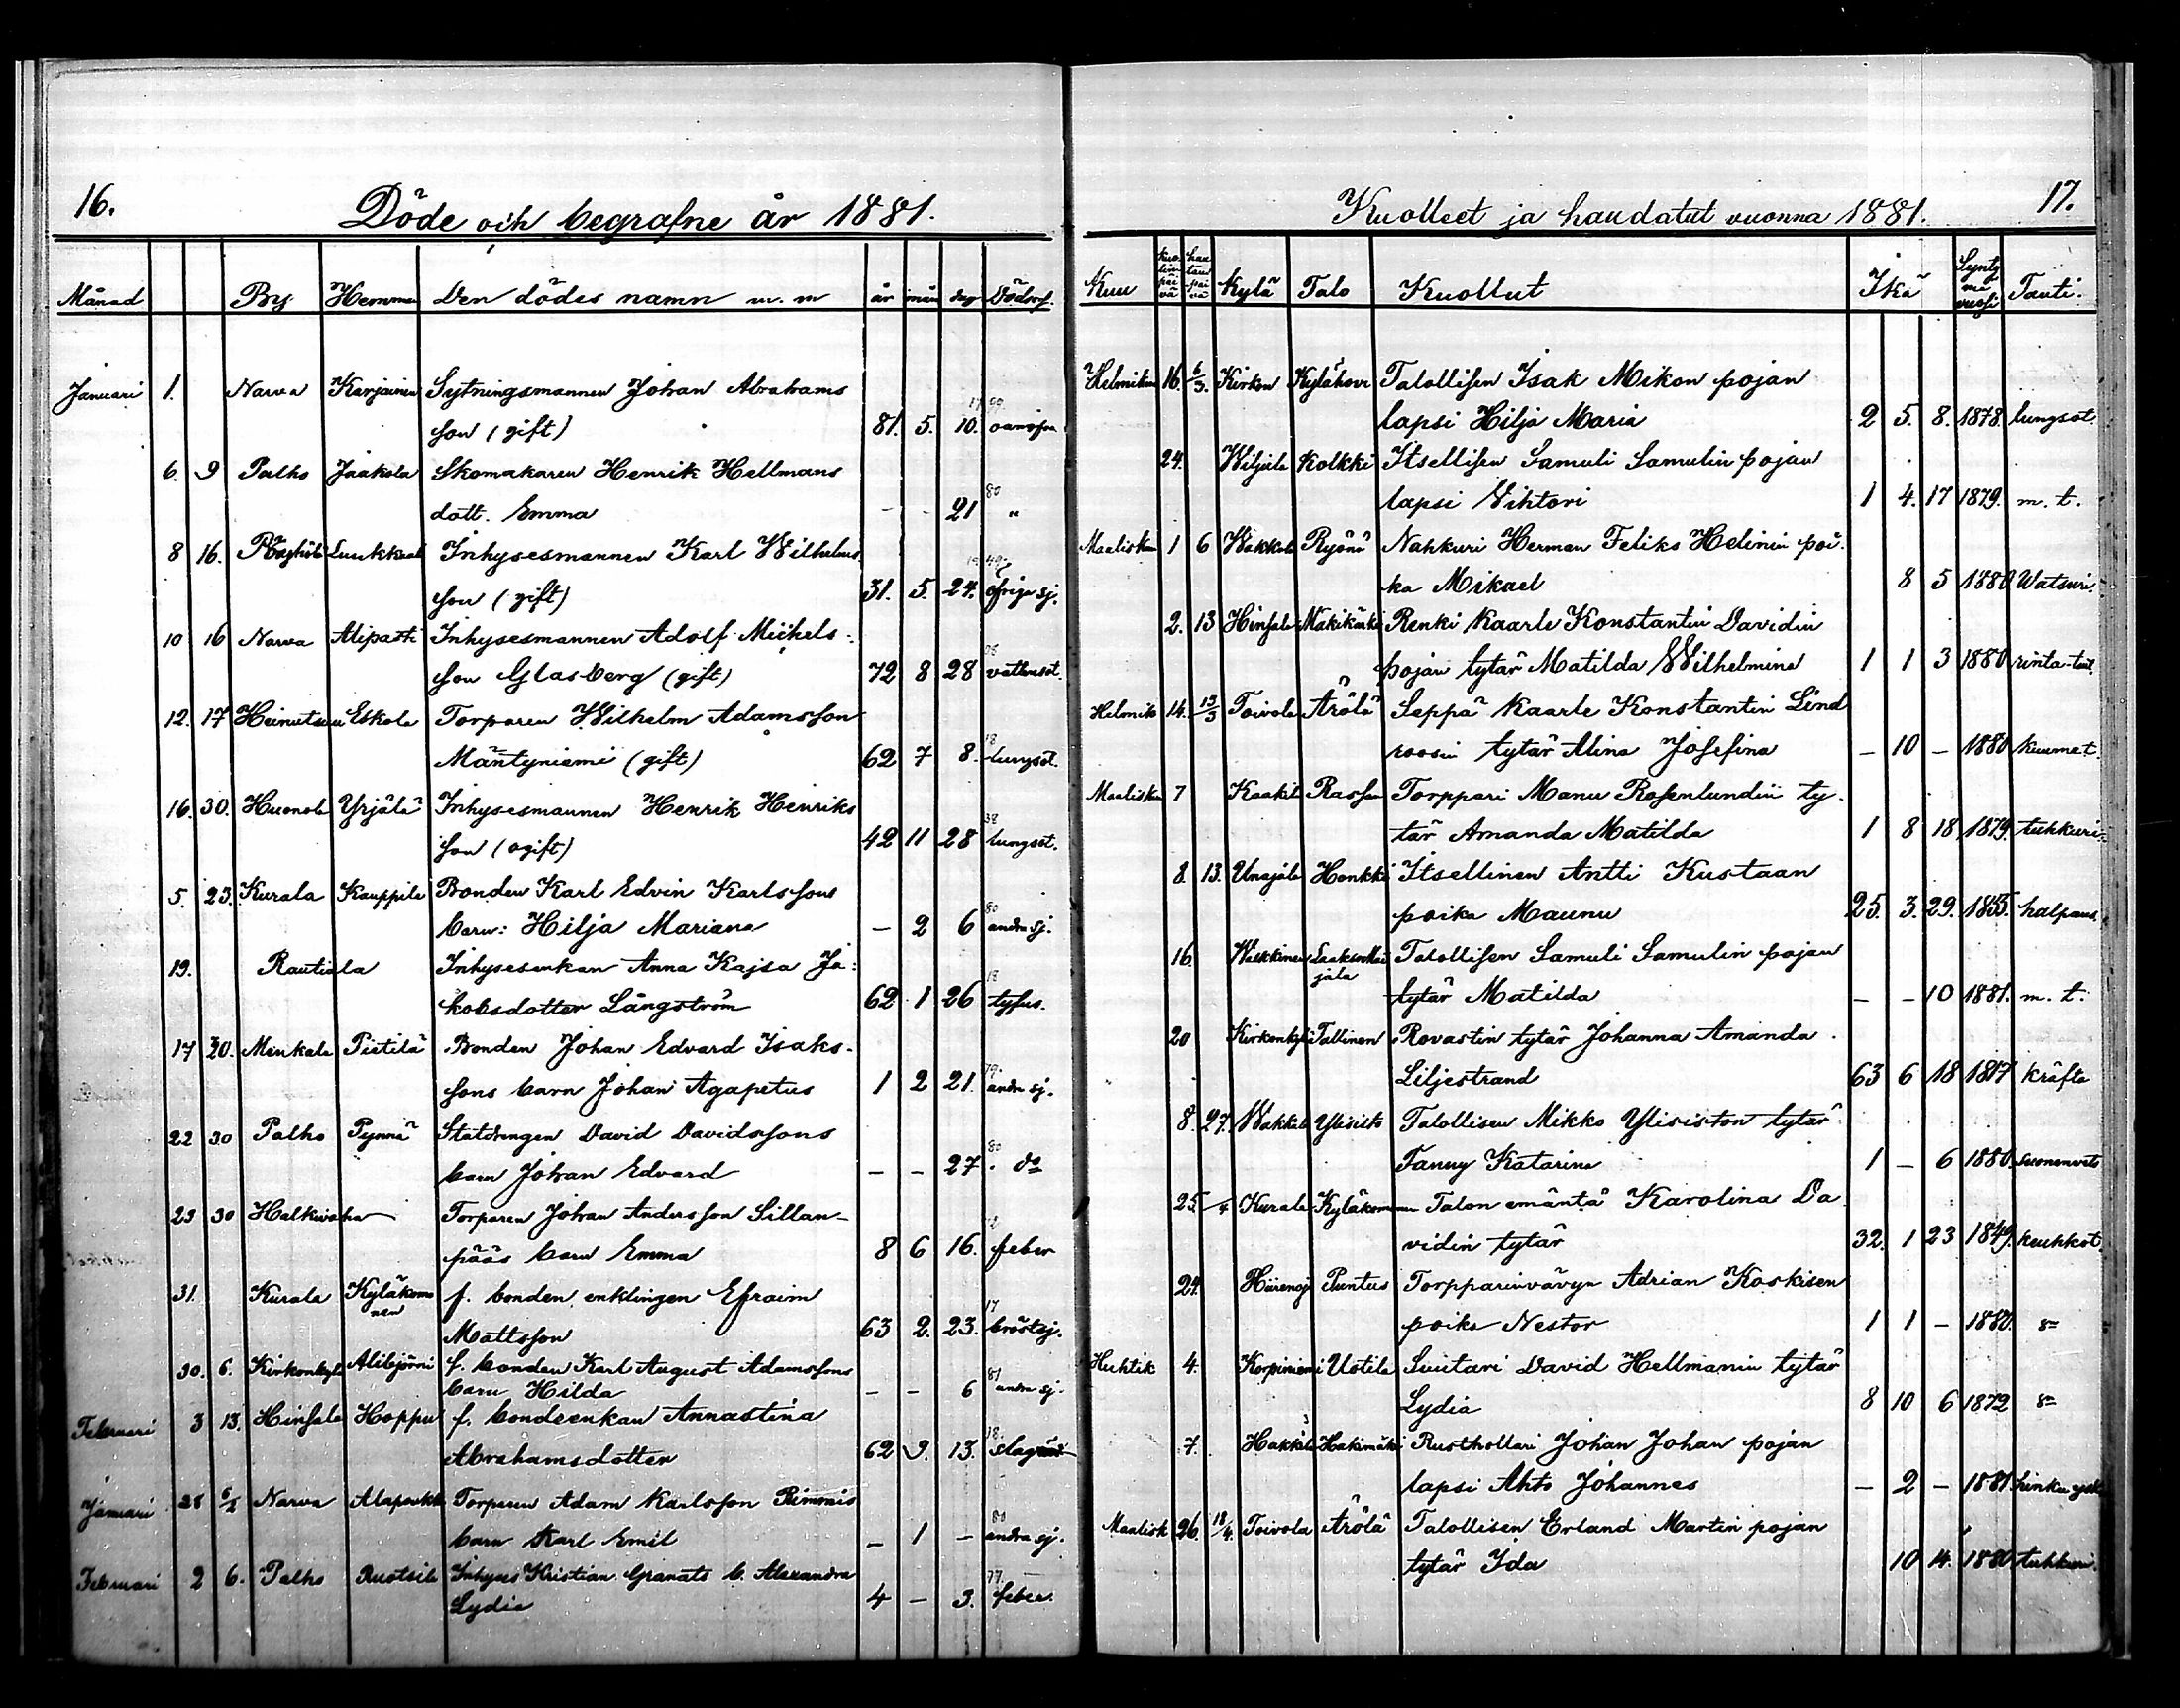 16.
Döde och begrafne år 1881.
Månad By Hemman Den dödes namn m. m år mån dag Dödors.
Januari 1. Narva Karjainen Sytningsmannen Johan Abrahams
son (gift) 81. 5. 10.
6. 9 Palho Jaakola Skomakaren Henrik Hellmans
dott. Emma - - 21 80 "
8 16. Inhysesmannen Karl Wilhelms
son (gift) 31. 5. 24. öfriga sj.
10 16 Narva Alipatti Inhysesmannen Adolf Michels-
son Glasberg (gift) 72 8 28 vattusot.
12. 17 Eskola Torparen Wilhelm Adamsson
Mäntyniemi (gift) 62 7 8. 18 lungsot.
16. 30. Huonola Yrjälä Inhysesmannen Henrik Henriks
son (ogift) 42 11 28 38 lungsot.
5. 23. Kurala Kauppila Bonden Karl Edvin Karlssons
barn: Hilja Mariana — 2 6 80 andra sj.
19. Rautiala Inhysesenkan Anna Kajsa Ja-
kobsdotter Långström 62 1 26 18 tyfus.
17 30. Menkala Pietilä Bonden Johan Edvard Isaks-
sons barn Johan Agapetus 1 2 21. 79. andra sj.
22 30 Palho Pynnä Statdrengen David Davidssons
barn Johan Edvard — — 27 80 do
23 30 Halkivaha Torparen Johan Andersson Sillan-
pääs barn Emma 8 6 16. 72 feber
31. Kurala Kyläkomo
nen f. bonden enklingen Efraim
Mattsson 63 2. 23. 17 bröstsj.
30. 6. Kirkonkylä Alibjörni f. bonden Karl August Adamssons
barn Hilda — — 6 81 andra sj.
Februari 3 13. Hinsala Hoppu f. bondeenkan Annastina
Abrahamsdotter 62 9. 13. 18.
Januari 28 6/2 Narva Alapoukka Torparen Adam Karlsson Rimmis
barn Karl Emil — 1 — 80 andra sj.
Februari 2 6. Palho Ruotsila Inhyses Kristian Granats b. Alexandra
Lydia 4 — 3. 77. feber.
17.
Kuolleet ja haudatut vuonna 1881.
Kuu kuo-
lin-
päi
vä hau
taus
päi
vä Kylä Talo Kuollut Ikä Synty
mä
vuosi Tauti.
Helmikuu 16. 6/3. Kirkon Kylähovi Talollisen Isak Mikon pojan
lapsi Hilja Maria 2 5. 8. 1878. lungsot.
24. Wiljula Kolkki Itsellisen Samuli Samulin pojan
lapsi Wihtori 1 4. 17 1879. m. t.
Maaliskuu 1 6 Wakkala Ryönö Nahkuri Herman Feliks Helinin poi-
ka Mikael 8 5 1880 Watsuri.
2. 13 Hinsala Mäkikärki Renki Kaarle Konstantin Davidin
pojan tytär Matilda Wilhelmina 1 1 3 1880 rinta-taut.
Helmik 14. 13/3 Toivola Ärölä Seppä Kaarle Konstantin Lind
roosin tytär Alina Josefina — 10 — 1880 kuumet.
Maaliskuu 7 Kaakila Rassan Torppari Manu Rosenlundin ty-
tär Amanda Matilda 1 8 18 1879. tuhkuri-
8. 13. Unajala Honkki Itsellinen Antti Kustaan
poika Maunu 25. 3. 29. 1855. halpaus.
16. Talollisen Samuli Samulin pojan
tytär Matilda — — 10 1881. m. t.
20 Kirkonkyl Tallinen Rovastin tytär Johanna Amanda
Liljestrand 63 6 18 1817 kräfta
8. 27. Wakkala Ylisisto Talollisen Mikko Ylisiston tytär
Fanny Katarina 1 — 6 1880. suonenveto
25. Kurala Kyläkomonen Talon emäntä Karolina Da
vidin tytär 32. 1 23 1849. keuhkot.
24. Hiirenoj Puntus Torpparinvävyn Adrian Koskisen
poika Nestor 1 1 — 1880. sn
Huhtik 4. Korpiniemi Uotila Suutari David Hellmanin tytär
Lydia 8 10 6 1872 sn
7. Hakkila Hakimäki Rusthollari Johan Johan pojan
lapsi Ahto Johannes — 2 — 1881. hinku ysk
Maalisk 26. 18/4. Toivola Ärölä Talollisen Erland Martin pojan
tytär Ida 10 14. 1880 tuhkuri.